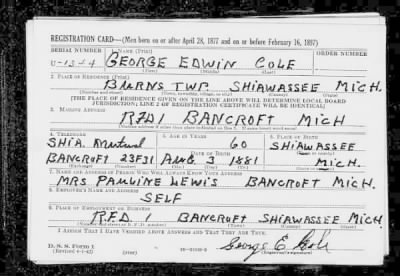 REGISTRATION CARD—(Men born on or after April 28, 1877 and on or before February 16, 1897)
SERIAL NUMBER 1. NAME (Print) ORDER NUMBER
U-1344 GEORGE EDWIN COLE
2. PLACE OF RESIDENCE (Print)
BURNS TWP. SHIAWASSEE MICH.
[THE PLACE OF RESIDENCE GIVEN ON THE LINE ABOVE WILL DETERMINE LOCAL BOARD
JURISDICTION; LINE 2 OF REGISTRATION CERTIFICATE WILL BE IDENTICAL]
3. MAILING ADDRESS
RFD1 BANCROFT MICH
4. TELEPHONE 5. AGE IN YEARS 6. PLACE OF BIRTH
SHIA. Mutual 60 SHIAWASSEE
DATE OF BIRTH
BANCROFT 23F31 AUG 3 1881 MICH.
7. NAME AND ADDRESS OF PERSON WHO WILL ALWAYS KNOW YOUR ADDRESS
MRS PAULINE LEWIS BANCROFT MICH.
8. EMPLOYER'S NAME AND ADDRESS
SELF
9. PLACE OF EMPLOYMENT OR BUSINESS
RFD. 1 BANCROFT SHIAWASSEE MICH.
I AFFIRM THAT I HAVE VERIFIED ABOVE ANSWERS AND THAT THEY ARE TRUE.
D. S. S. Form 1 George E. Cole
(Revised 4-1-42) (Registrant's signature)